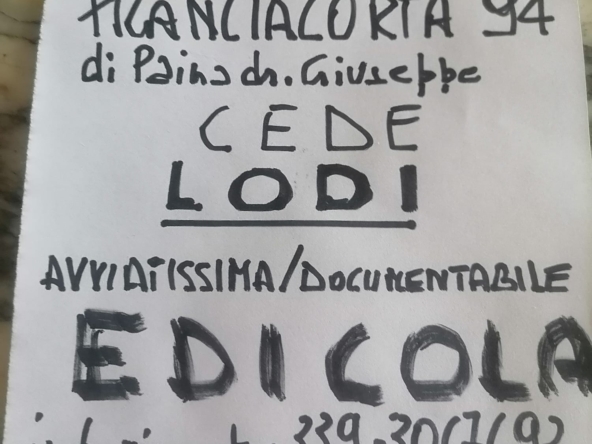 FRANCIACORTA 94
di Paina dr. Giuseppe
CEDE
LODI
AVVIATISSIMA/DOCUMENTABILE
EDICOLA
339